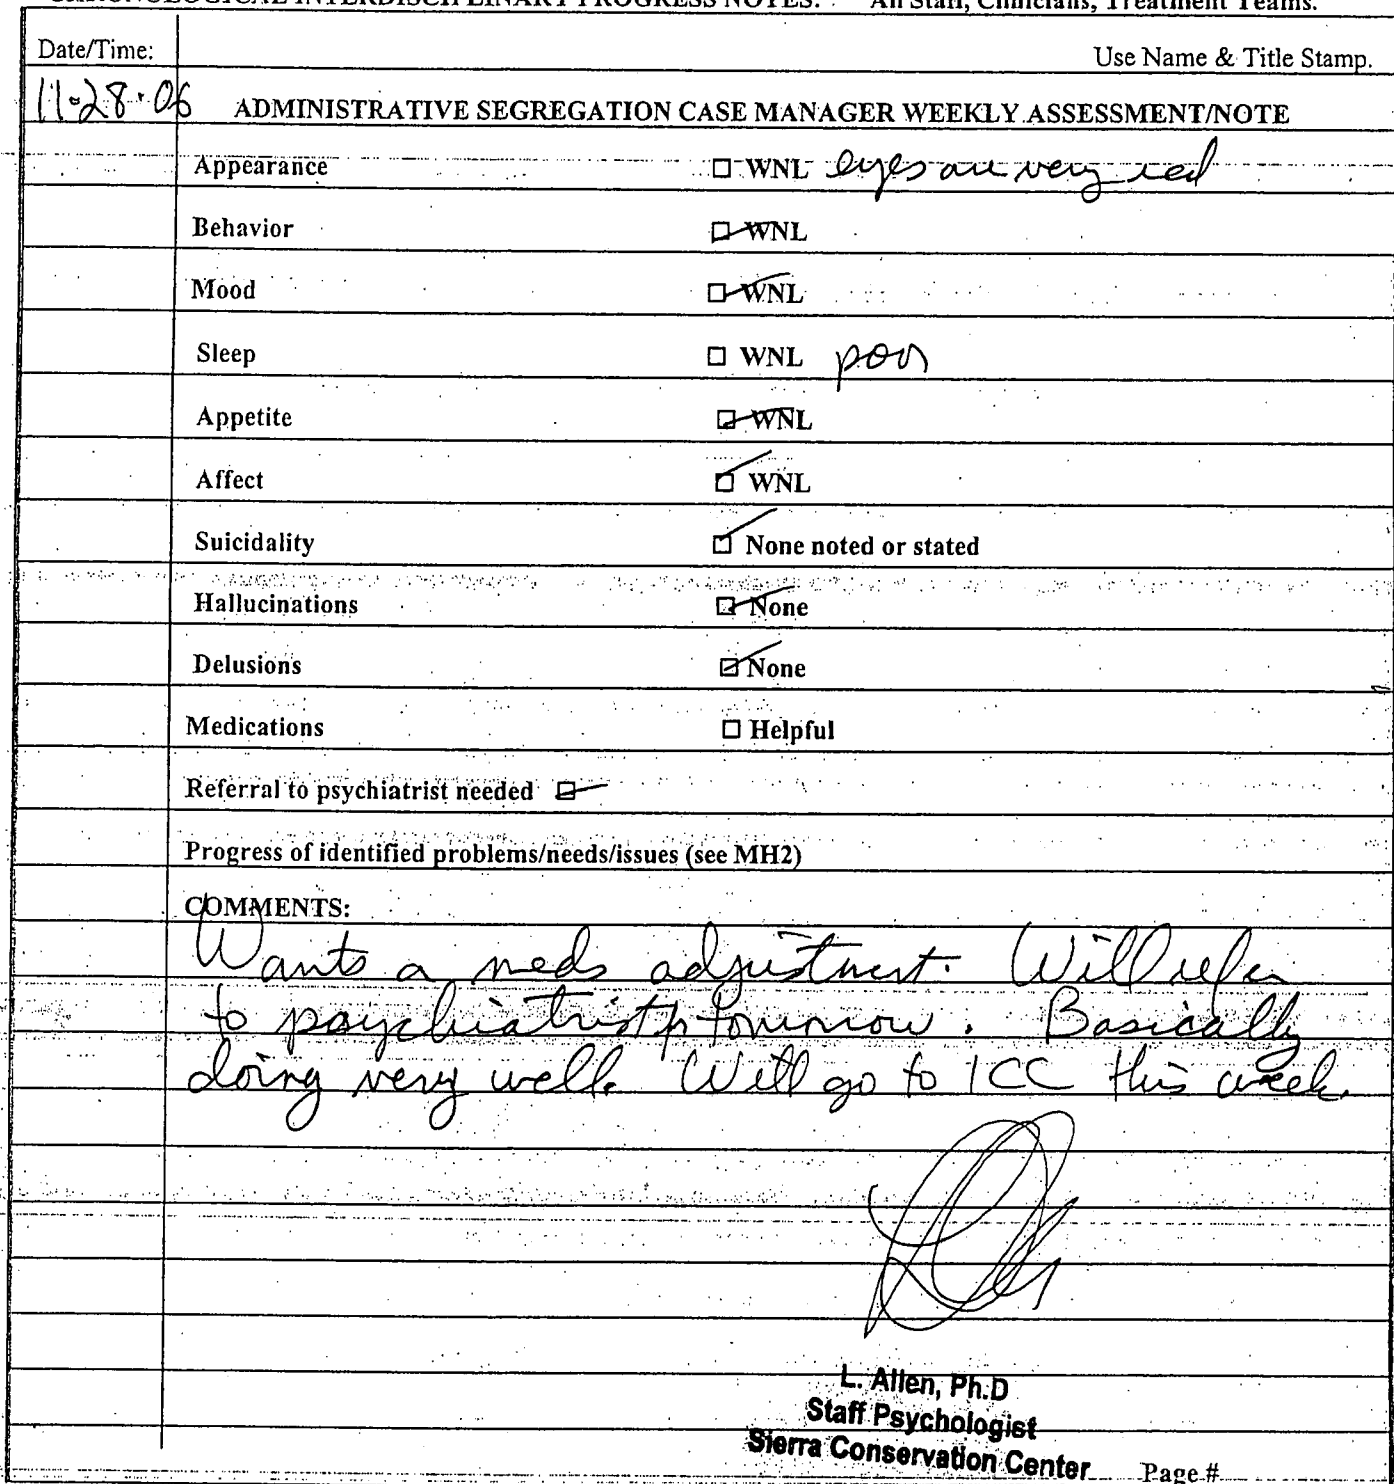 CHRONOLOGICAL INTERDISCIPLINARY PROGRESS NOTES: All Staff, Clinicians, Treatment Teams.
Date/Time: Use Name & Title Stamp.
11-28-06 ADMINISTRATIVE SEGREGATION CASE MANAGER WEEKLY ASSESSMENT/NOTE
Appearance ☐ WNL eyes are very red
Behavior ☑ WNL
Mood ☑ WNL
Sleep ☐ WNL poor
Appetite ☑ WNL
Affect ☑ WNL
Suicidality ☑ None noted or stated
Hallucinations ☑ None
Delusions ☑ None
Medications ☐ Helpful
Referral to psychiatrist needed ☑
Progress of identified problems/needs/issues (see MH2)
COMMENTS:
Wants a meds adjustment. Will refer
to psychiatrist tomorrow. Basically
doing very well. Will go to ICC this week.
L. Allen, Ph.D
Staff Psychologist
Sierra Conservation Center Page #